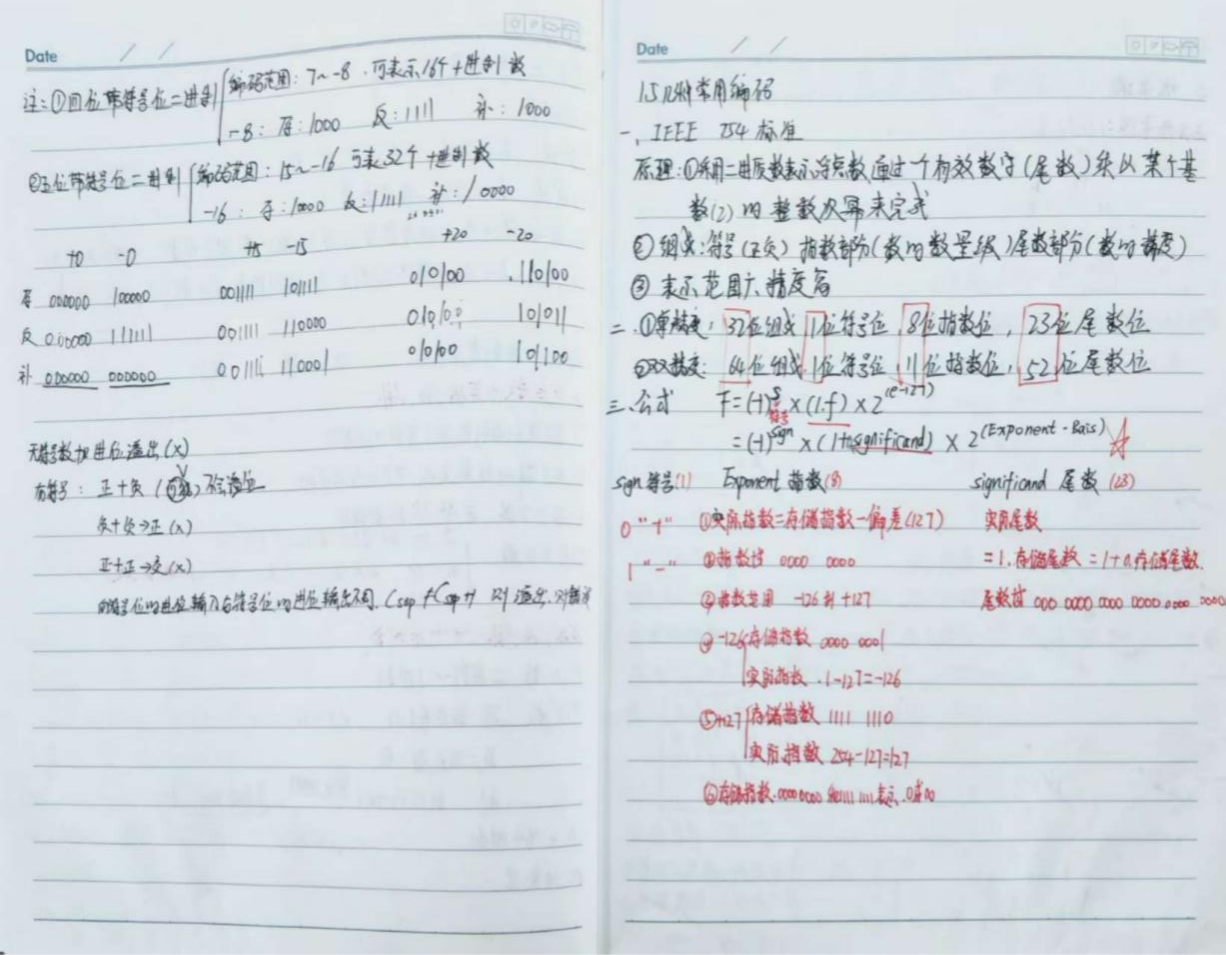 Date / /
注:①四位带符号位二进制 编码范围:7~-8.可表示16个十进制数
-8:原:1000 反:1111 补:1000
②五位带符号位二进制 编码范围:15~-16 可表32个十进制数
-16:原:10000 反:11111 补:10000
+0 -0 +15 -15 +20 -20
原 000000 100000 001111 101111 010100 110100
反 000000 111111 001111 110000 010100 101011
补 000000 000000 001111 110001 010100 101100
无符号数加进位溢出(x)
有符号: 正+负() 不会溢出
负+负→正(x)
正+正→负(x)
符号位的进位输入与符号位的进位输出不同.
Date / /
1.5 几种常用编码
一、IEEE 754 标准
原理:①采用二进质数表示浮点数通过一个有效数字(尾数)乘以某个基
数(2)的整数次幂来完成
②组成:符号(正负) 指数部分(数的数量级)尾数部分(数的精度)
③表示范围大精度高
二.①单精度:32位组成 1位符号位,8位指数位,23位尾数位
②双精度:64位组成,1位符号位,11位指数位,52位尾数位
三.公式 F=(-1)^S×(1.f)×2^(e-127)
符号
=(-1)^sgn×(1+significand)×2^(Exponent-Bais)
sign符号(1) Exponent 指数(8) significand 尾数(23)
0 "+" ①实际指数=存储指数-偏差(127) 实际尾数
1 "-" ②指数位 0000 0000 =1.存储尾数=1+0.存储尾数.
③指数范围 -126到+127 尾数位 000 0000 0000 0000 0000 0000
④-126 存储指数 0000 0001
实际指数.1-127=-126
⑤+127 存储指数 1111 1110
实际指数 254-127=127
⑥存储指数.0000 0000 和1111 1111 表示.0或∞